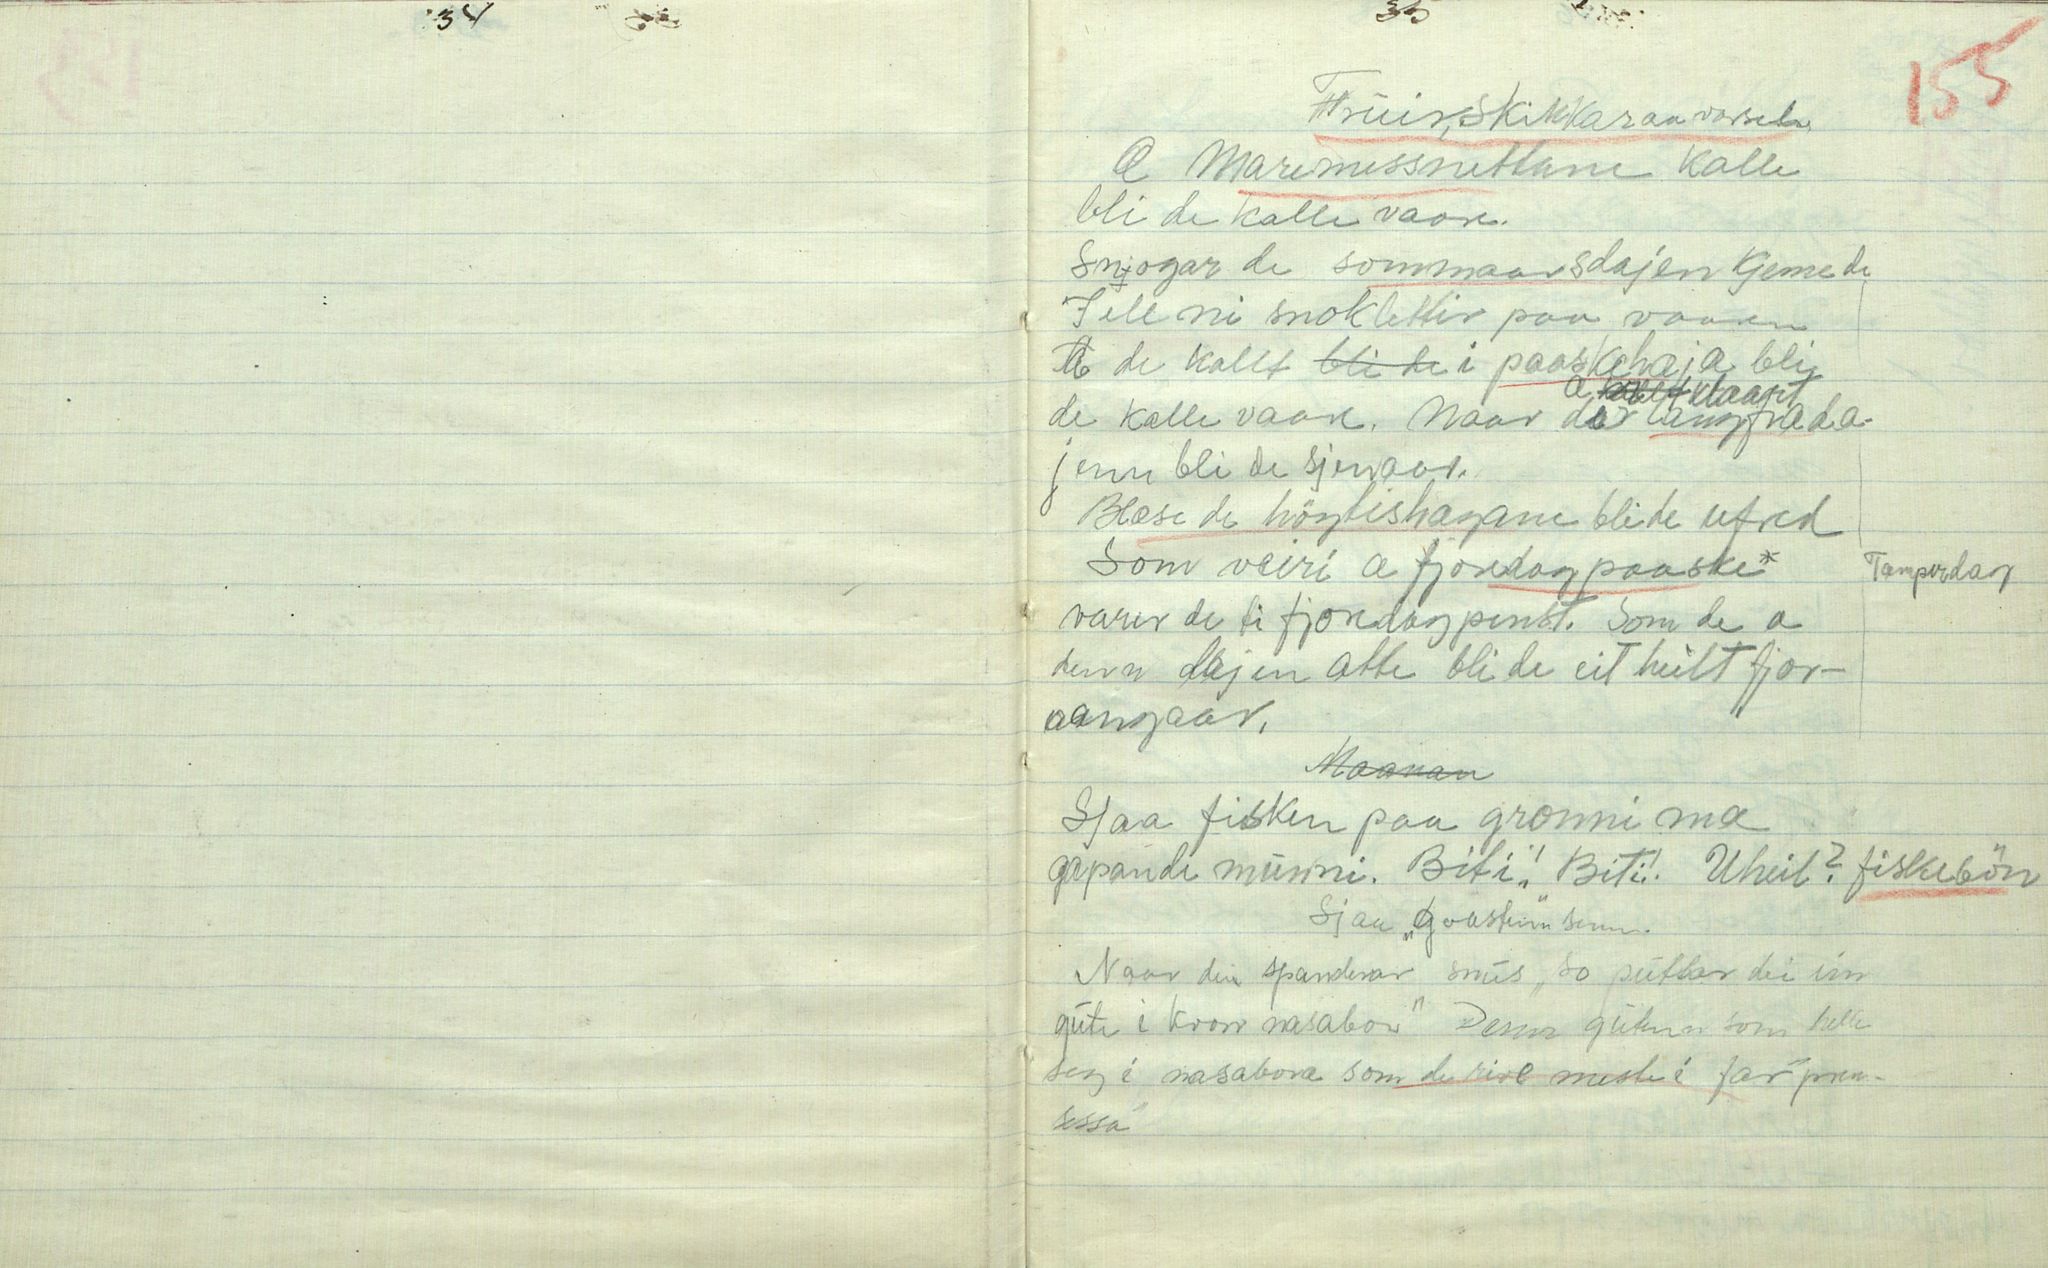 34
35
155
Truir, skikkar aa varsel
Æ Maremessnettane kalle
bli de kalle vaare.
Snjogar de sommaarsdajen kjeme de
Tell ni snoklettir paa vaaren
Æ de kallt bli de i paaskehaja bli
de kalle vaare. Naar der langfreda-
æ klaart
jenn bli de sjenaar.
Blæse de högtishagane bli de ufred
Som veiri æ fjoredag paaske*
Tamperdag
varer de ti fjoredag penst. Som de æ
denn dajen atte bli de eit heilt fjor-
aangaar.
Maanan
Sjaa fisken paa gronni mæ
gapande munni. Biti! Biti! Uheil? fiskebön
Sjaa "goastein" senn.
Naar dei spanderar snus "so puttar dei ein
gute i kvar nasabor" Denn guten som helle
seg i nasabora som de rive meste i far pren-
sessa"